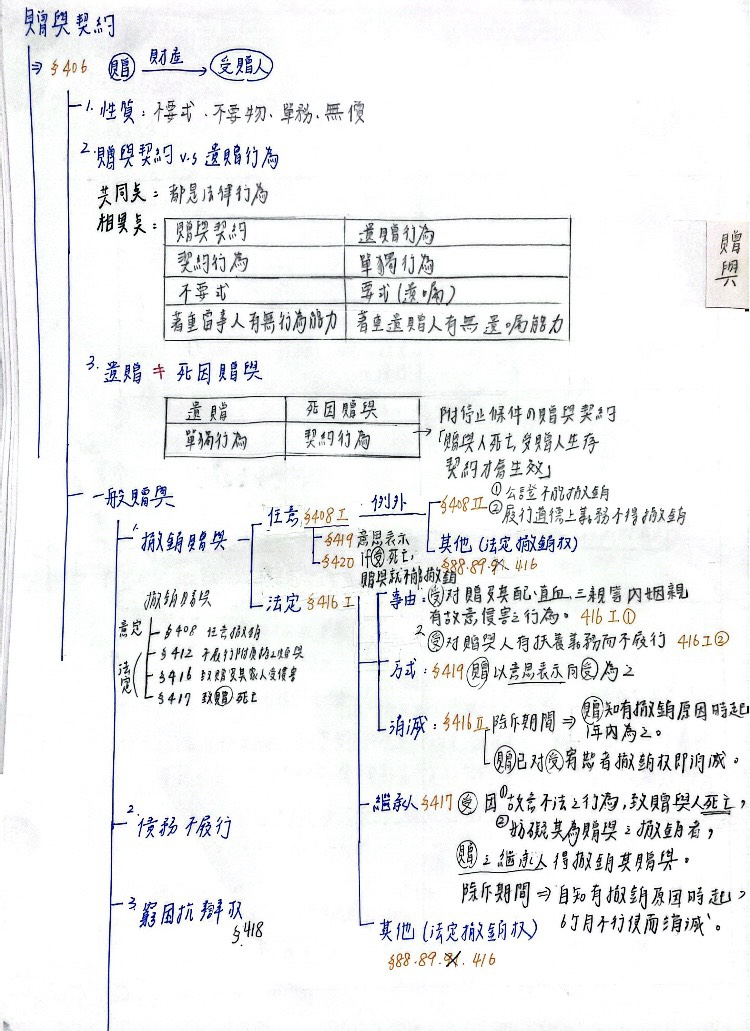 贈與契約
⇒ §406 贈 財產 → 受贈人
1. 性質：不要式、不要物、單務、無償
2. 贈與契約 v.s 遺贈行為
共同點：都是法律行為
相異點：
贈與契約 遺贈行為
契約行為 單獨行為
不要式 要式(遺囑)
著重當事人有無行為能力 著重遺贈人有無遺囑能力
贈與
3. 遺贈 ≠ 死因贈與
遺贈 死因贈與
單獨行為 契約行為
→ 附停止條件の贈與契約
「贈與人死亡,受贈人生存
契約才會生效」
一般贈與
1. 撤銷贈與
任意 §408 I 例外
§408 II ① 公證不能撤銷
② 履行道德上義務不得撤銷
§419 意思表示
§420 if 受 死亡,
贈與就不能撤銷
其他 (法定撤銷權)
§88.89. 416
法定 §416 I
撤銷贈與
意定 §408 任意撤銷
法定 §412 不履行附負擔之贈與
§416 致贈及其家人受侵害
§417 致贈死亡
事由：受对贈及其配.直血.三親等內姻親
有故意侵害之行為。 416 I ①
2. 受对贈與人有扶養義務而不履行 416 I ②
方式：§419 贈 以意思表示向受為之
消滅：§416 II 除斥期間 ⇒ 贈知有撤銷原因時起
1年內為之。
贈已对受宥恕者撤銷权即消滅。
繼承人 §417 受 因①故意不法之行為,致贈與人死亡,
②妨礙其為贈與之撤銷者,
贈之繼承人得撤銷其贈與。
除斥期間 ⇒ 自知有撤銷原因時起,
6個月不行使而消滅。
其他 (法定撤銷权)
§88.89. 416
2. 債務不履行
3. 窮困抗辯权
§418